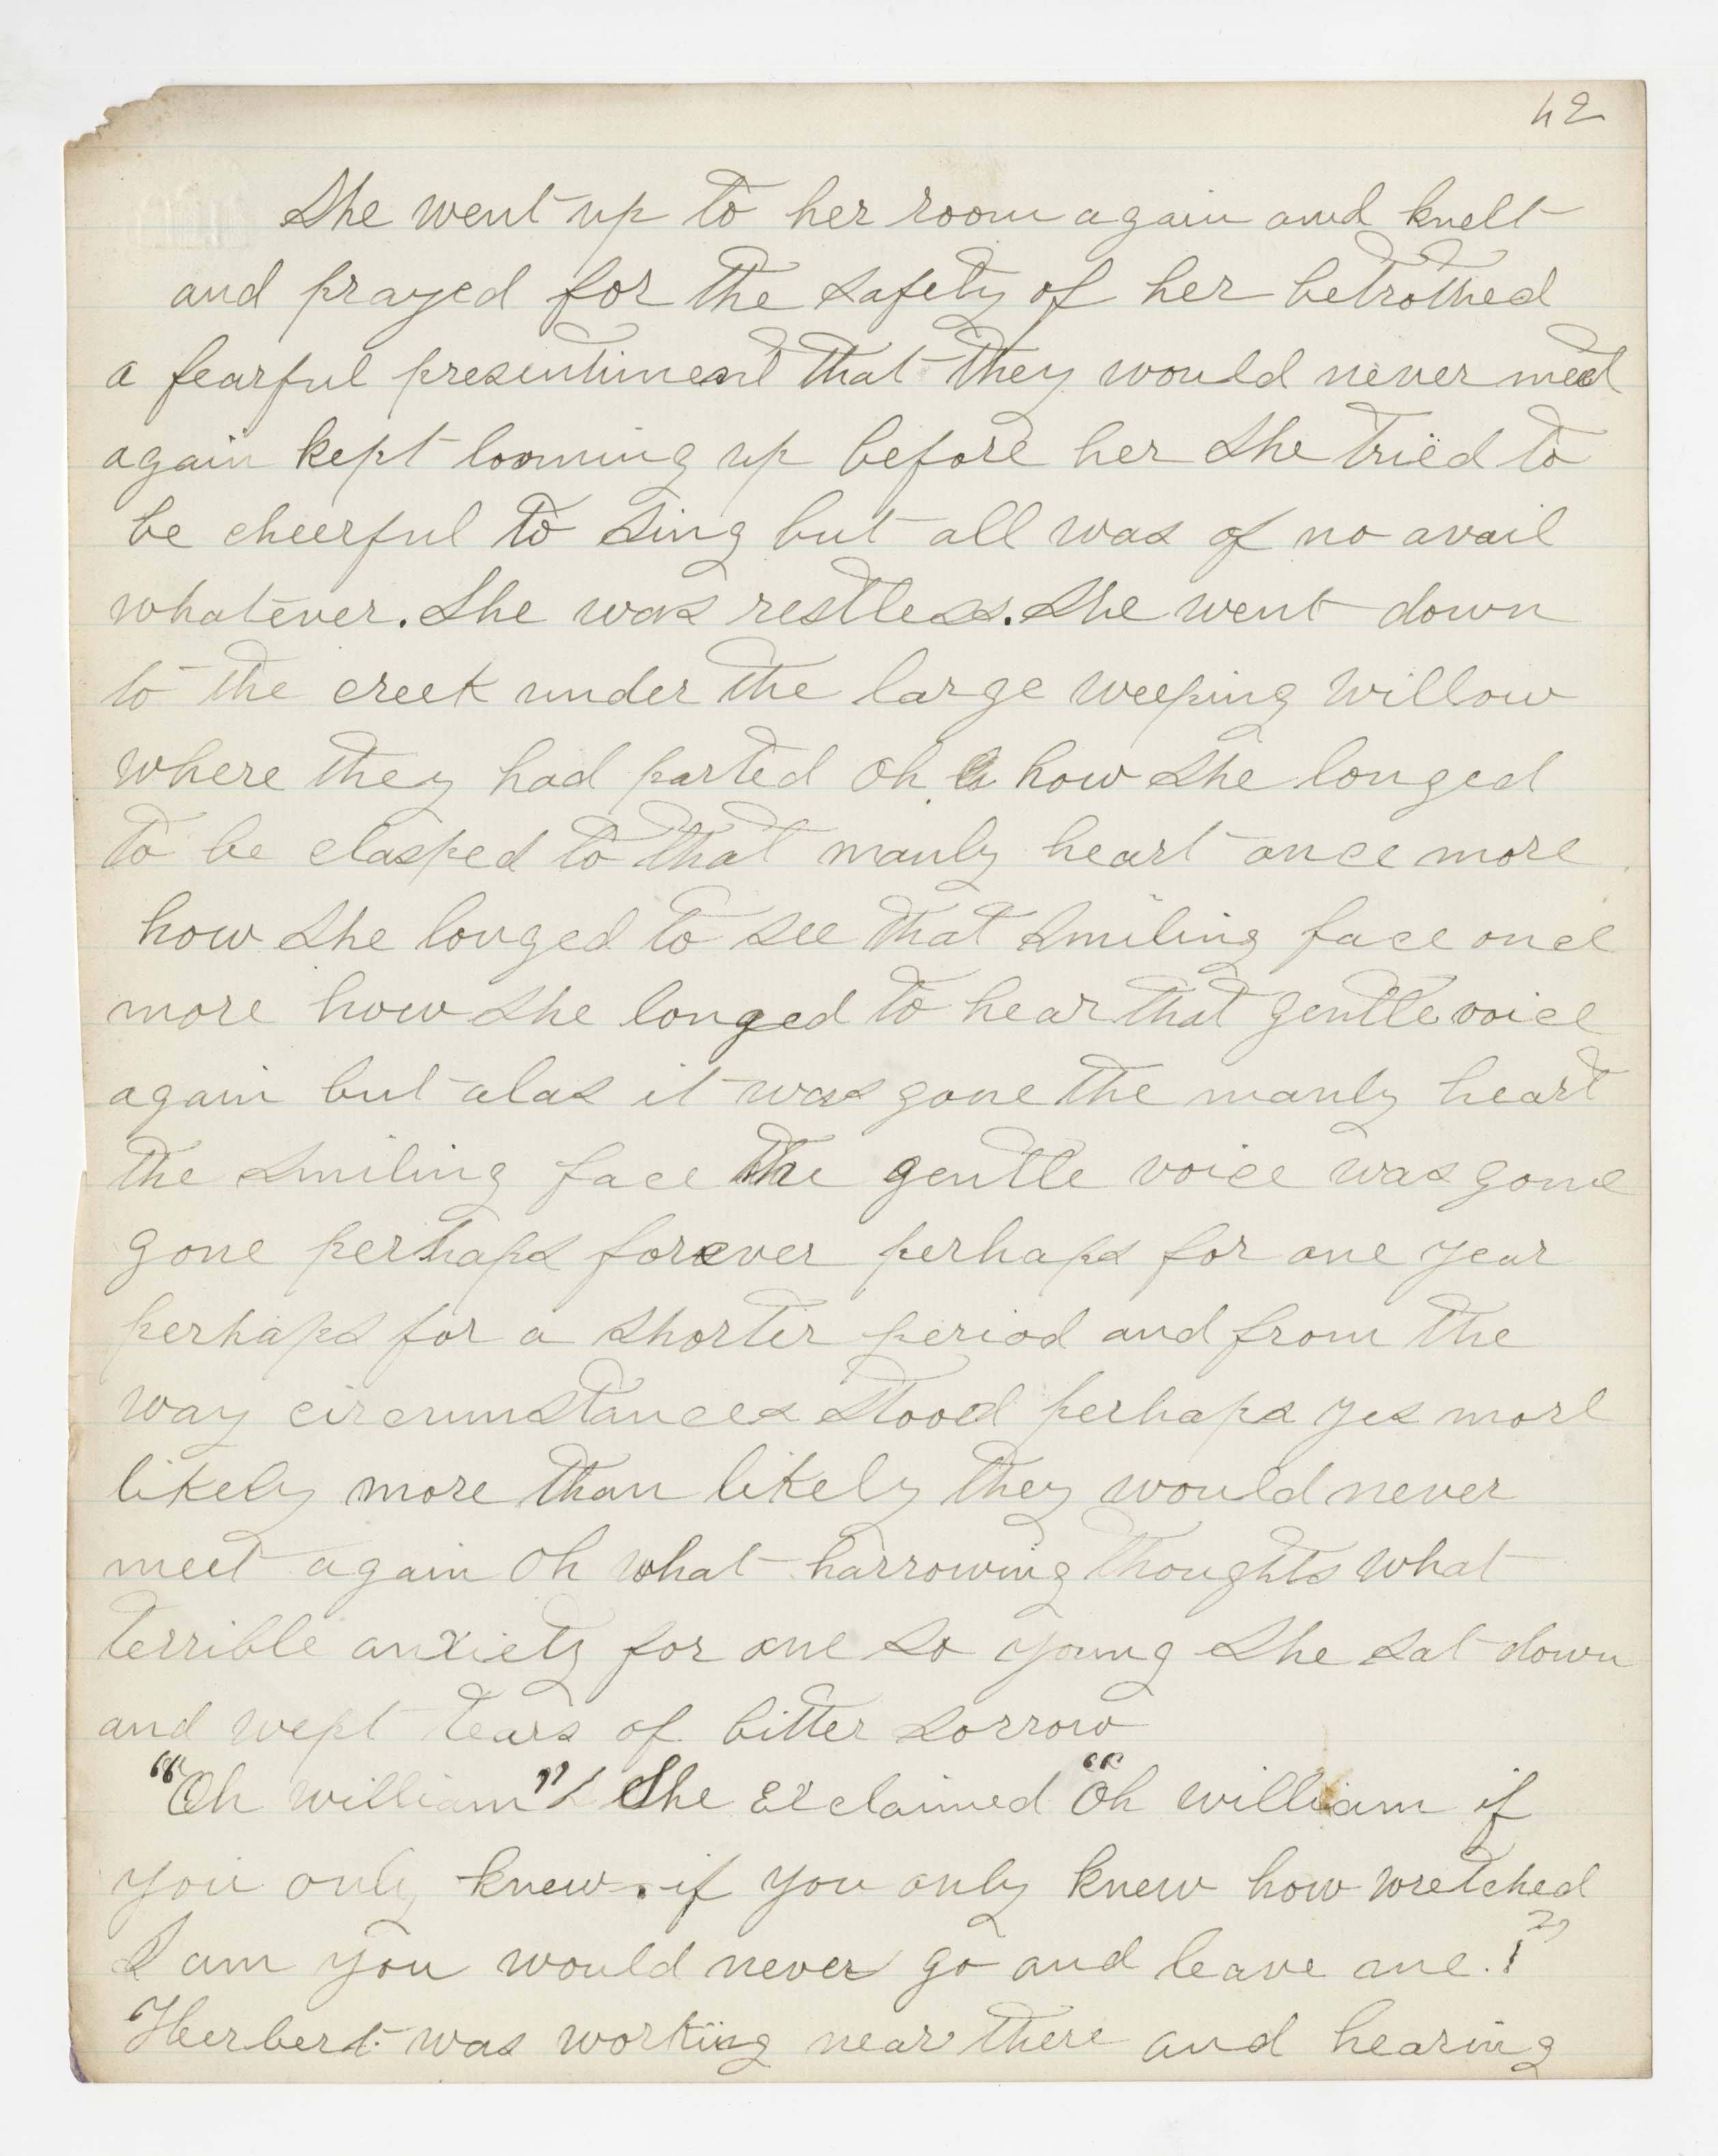 42
She went up to her room again and knelt
and prayed for the safety of her betrothed
a fearful presentiment that they would never meet
again kept looming up before her she tried to
be cheerful to sing but all was of no avail
whatever. She was restless. She went down
to the creek under the large weeping willow
where they had parted oh how she longed
to be clasped to that manly heart once more
how she longed to see that smiling face once
more how she longed to hear that gentle voice
again but alas it was gone the manly heart
the smiling face the gentle voice was gone
gone perhaps forever perhaps for one year
perhaps for a shorter period and from the
way circumstances stood perhaps yes more
likely more than likely they would never
meet again oh what harrowing thoughts what
terrible anxiety for one so young she sat down
and wept tears of bitter sorrow
"Oh william" She exclaimed "Oh william if
you only knew. if you only knew how wretched
I am you would never go and leave me.!"
Herbert was working near there and hearing